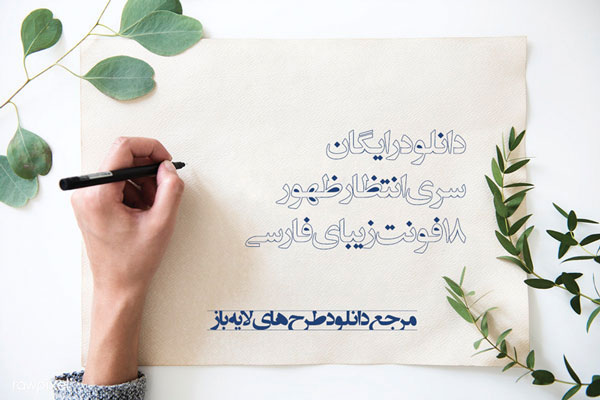 دانلود رایگان
سری انتظار ظهور
۱۸ فونت زیبای فارسی
مرجع دانلود طرح های لایه باز
rawpixel